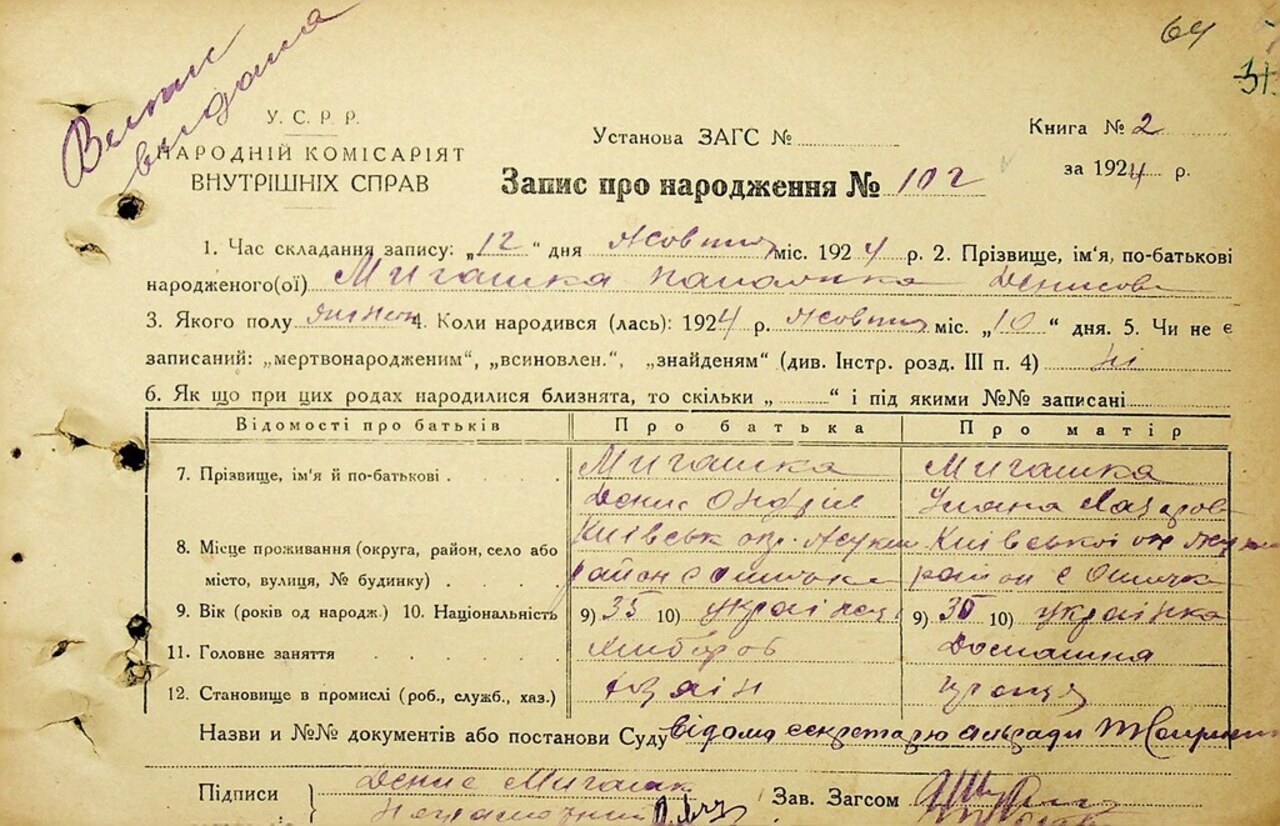 64
31.
Витяг видана
У. С. Р. Р.
НАРОДНІЙ КОМІСАРІЯТ
ВНУТРІШНІХ СПРАВ
Установа ЗАГС №
Книга № 2
за 1924 р.
Запис про народження № 102
1. Час складання запису: „12“ дня Жовтня міс. 1924 р. 2. Прізвище, ім'я, по-батькові
народженого(ої) Мигашка Денисова
3. Якого полу 4. Коли народився (лась): 1924 р. Жовтня міс. „10“ дня. 5. Чи не є
записаний: „мертвонародженим“, „всиновлен.“, „знайденям“ (див. Інстр. розд. III п. 4) ні
6. Як що при цих родах народилися близнята, то скільки „ “ і під якими №№ записані
Відомості про батьків Про батька Про матір
7. Прізвище, ім'я й по-батькові Мигашка Мигашка
Денис Уляна
8. Місце проживання (округа, район, село або Київськ окр. Київської ок
місто, вулиця, № будинку) район с район с
9. Вік (років од народж.) 10. Національність 9) 35 10) українец 9) 35 10) українка
11. Головне заняття Хлібороб Домашня
12. Становище в промислі (роб., служб., хаз.)
Назви и №№ документів або постанови Суду відома секретарю сільради
Підписи Денис Мигашк Зав. Загсом